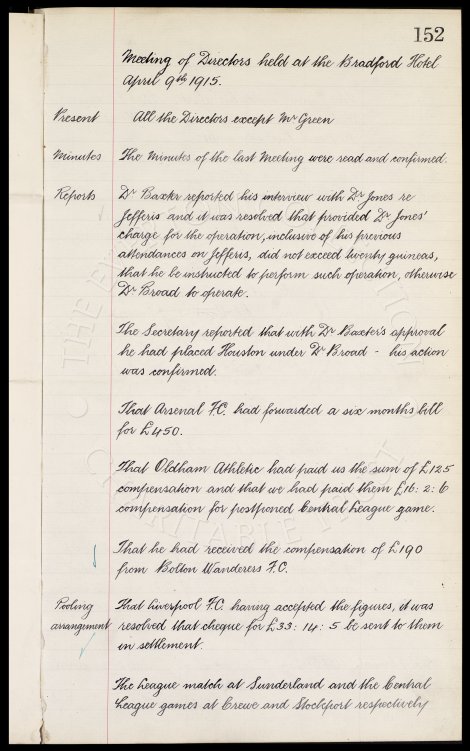 152
Meeting of Directors held at the Bradford Hotel
April 9th 1915.
Present All the Directors except Mr Green
Minutes The Minutes of the last Meeting were read and confirmed.
Reports Dr Baxter reported his interview with Dr Jones re
Jefferis and it was resolved that provided Dr Jones'
charge for the operation, inclusive of his previous
attendances on Jefferis, did not exceed twenty guineas,
that he be instructed to perform such operation, otherwise
Dr Broad to operate.
The Secretary reported that with Dr Baxter's approval
he had placed Houston under Dr Broad - his action
was confirmed.
That Arsenal F.C. had forwarded a six months bill
for £450.
That Oldham Athletic had paid us the sum of £125
compensation and that we had paid them £16: 2: 6
compensation for postponed Central League game.
That he had received the compensation of £190
from Bolton Wanderers F.C.
Pooling That Liverpool F.C. having accepted the figures, it was
arrangement resolved that cheque for £33: 14: 5 be sent to them
in settlement.
The League match at Sunderland and the Central
League games at Crewe and Stockport respectively